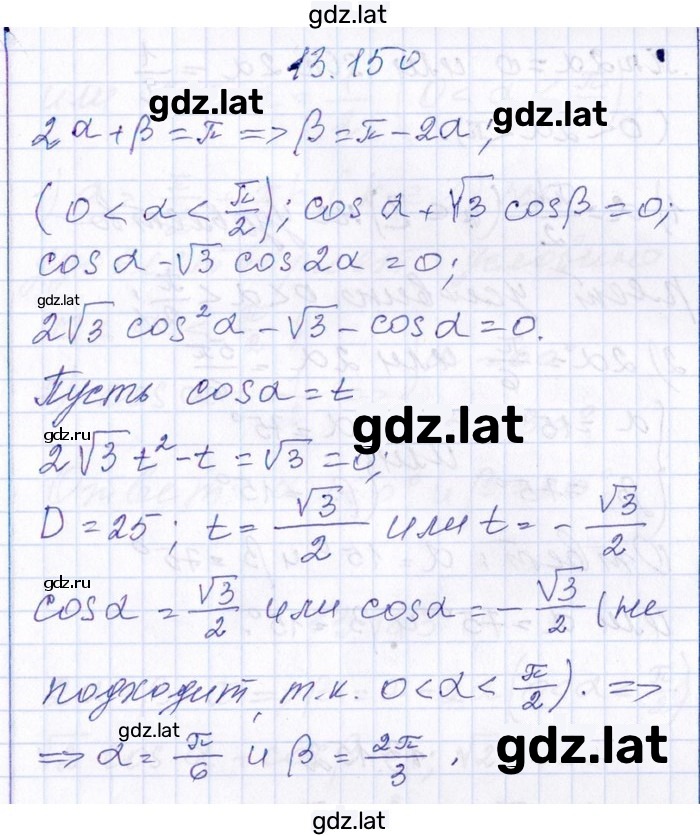 gdz.lat
13.150
gdz.lat
gdz.lat
2α + β = π => β = π - 2α;
(0 < α < π/2); cos α + √3 cos β = 0;
cos α - √3 cos 2α = 0;
gdz.lat
2√3 cos²α - √3 - cos α = 0.
Пусть cos α = t
gdz.lat
gdz.ru
2√3 t² - t = √3 = 0;
D = 25; t = √3/2 или t = - √3/2
gdz.ru
cos α = √3/2 или cos α = - √3/2 (не
подходит, т.к. 0 < α < π/2). =>
gdz.lat
gdz.lat
=> α = π/6 и β = 2π/3.
gdz.lat